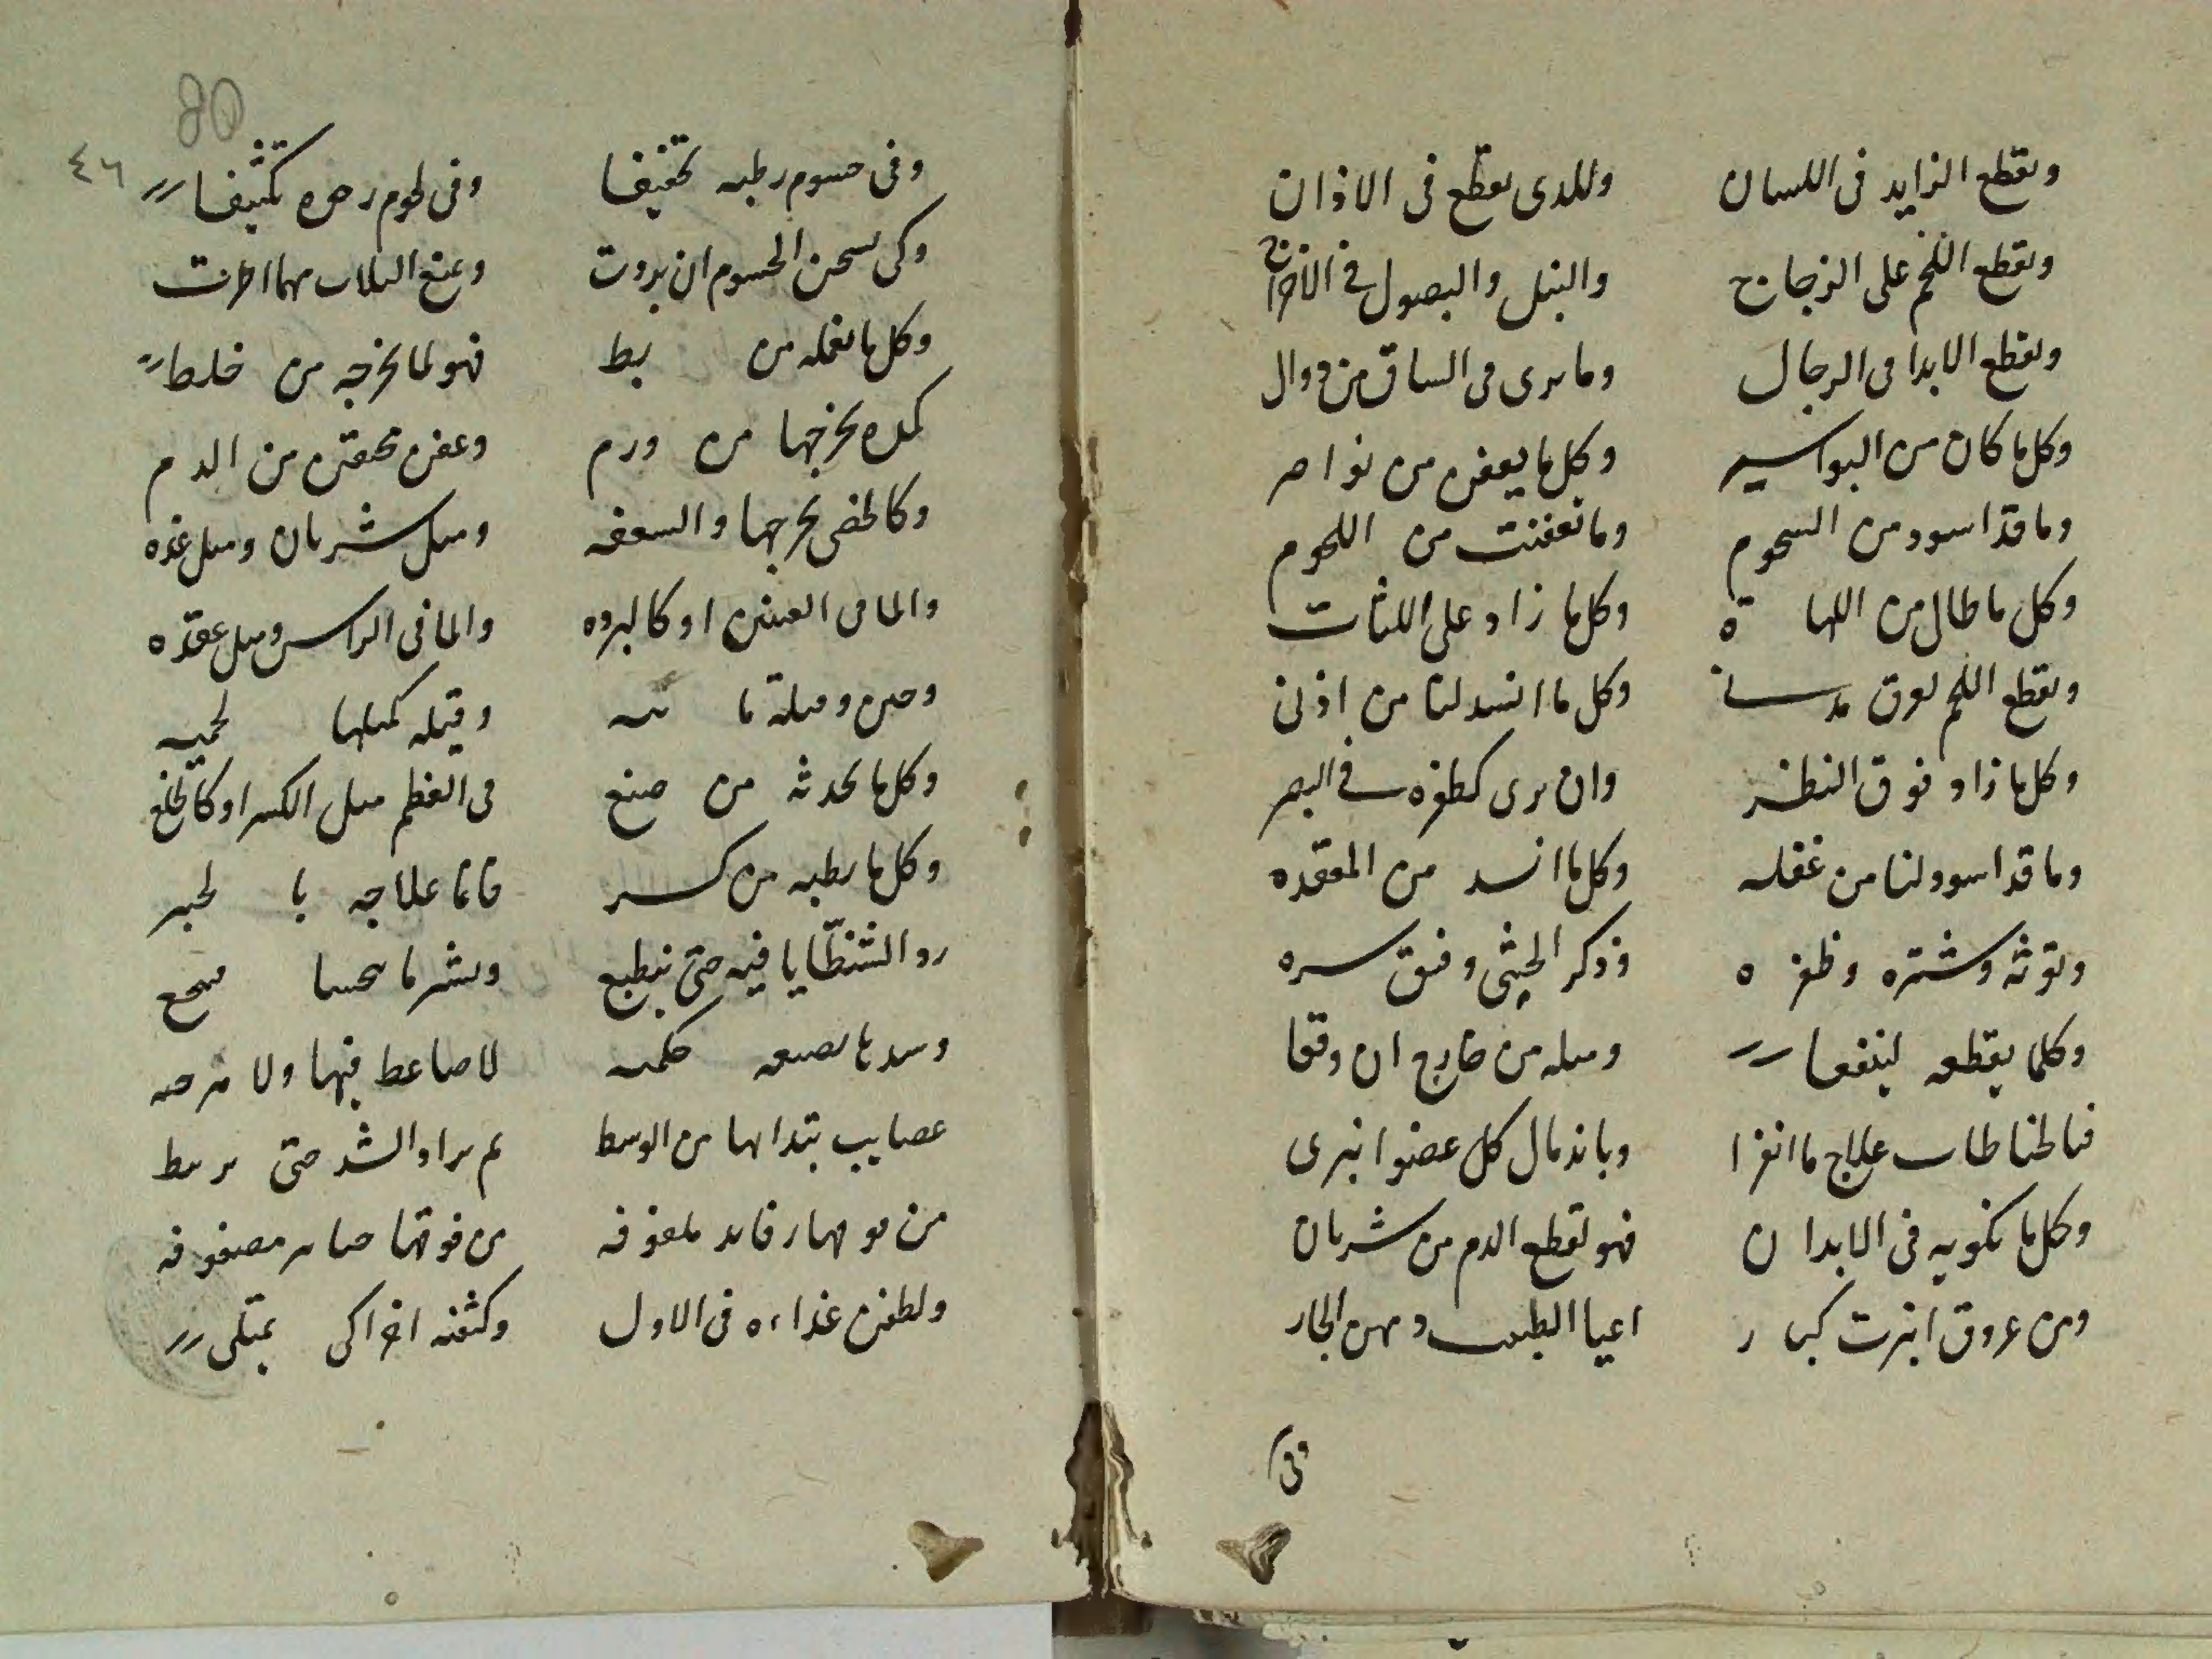 ونقطع الزايد فى اللسان وللدى نقطع فى الاذان
ونقطع اللخم على الزجاج والنبل والبصول فى
ونقطع الابدا فى الرجال وما يرى فى الساق من دوال
وكل ما كان من البواسير وكل ما يعفن من نواصر
وما قد اسود من السحوم وما تعفنت من اللحوم
وكل ما طال من اللهاة وكل ما زاد على اللثات
ونقطع اللحم لعرق مدسنا وكل ما انسد لنا من اذنى
وكل ما زاد فوق النظر وان يرى كظفره فى البصر
وما قد اسود لنا من غفله وكل ما انسد من المعقده
وتوثه وشتره وظفره وذكر الخنثى وفتق سره
وكلما يقطعه لينفعا ومثله من خارج ان وقعا
فبالخناطات علاج ما انفرا وباندمال كل عضو انبرى
وكل ما نكويه فى الابدان فهو لقطع الدم من شريان
ومن عروق انبرت كبار اعيا الطبيب دمهن الجار
وفى
80
٤٦
وفى جسوم رطبه تخفيفا وفى لحوم رخوه تكثيفا
وكى تسخن الجسوم ان بردت ومنع البلات مهما اطرت
وكل ما نعمله من بط فهو لما نخرجه من خلط
كمده نخرجها من ورم وعفن محتقن من الدم
وكالحصى نخرجها والسعفه ومثل شريان ومثل غده
والما فى العينين او كالبرده والما فى الراس ومثل عقده
وحبن وميلة مائيه وقيله كمثلها لحميه
وكل ما نحدثه من صنع فى العظم مثل الكسر او كالخلع
وكل ما نطبه من كسر فانما علاجه بالجبر
رد الشظايا فيه حتى ينطبع ونشر ما
وشدها بصنعه حكميه لا ضاغط فيها ولا مرخيه
عصايب تبتدا بها من الوسط ثم يزاد الشد حتى يرتبط
من فوقها رفايد ملفوفه من فوقها جباير مصفوفه
ولطفن غذاءه فى الاول وكثفنه اخرا كى يمتلى